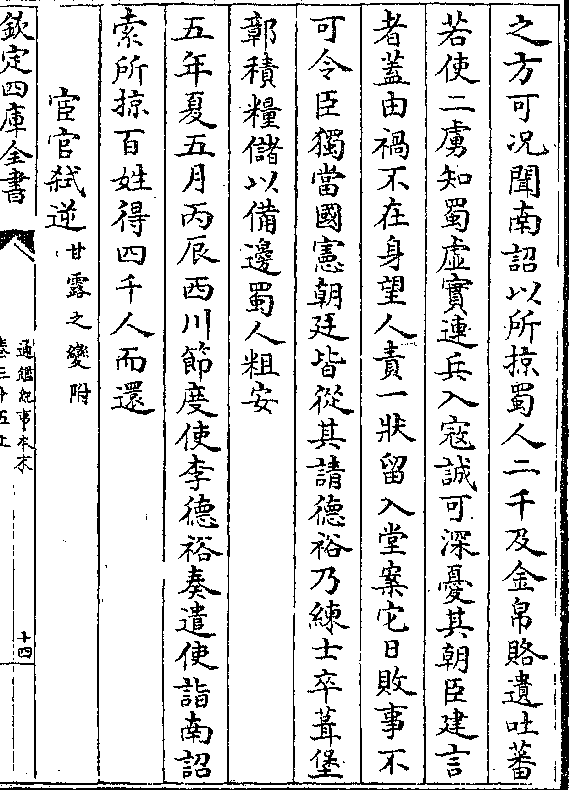 之方可况聞南詔以所掠蜀人二千及金帛賂遺吐蕃
若使二虜知蜀虛實連兵入寇誠可深憂其朝臣建言
者蓋由禍不在身望人責一狀留入堂案它日敗事不
可令臣獨當國憲朝廷皆從其請德裕乃練士卒葺堡
鄣積糧儲以備邊蜀人粗安
五年夏五月丙辰西川節度使李德裕奏遣使詣南詔
索所掠百姓得四千人而還
宦官弑逆甘露之變附
欽定四庫全書
通鑑紀事本末
卷三十五上
十四